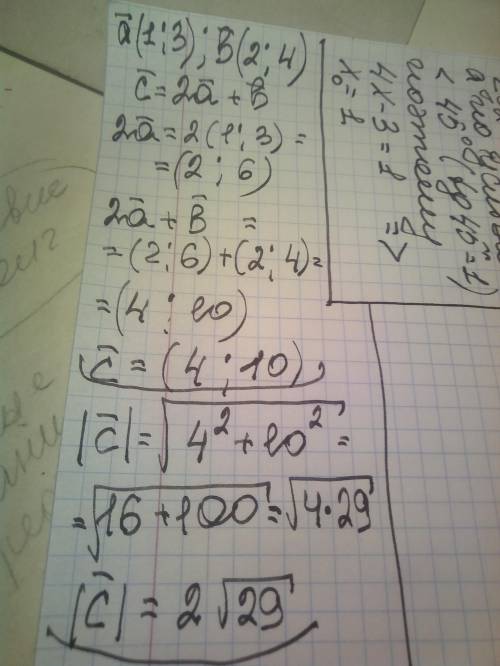 ā(1;3); B̄(2;4)
c̄=2ā+B̄
2ā=2(1;3)=
=(2;6)
2ā+B̄ =
=(2;6)+(2;4)=
=(4;10)
c̄=(4;10)
|c̄|=√4²+10²=
=√16+100=√4·29
|c̄|=2√29
< 45° (tg45=1)
поэтому
4x-3=1 =>
x₀=1